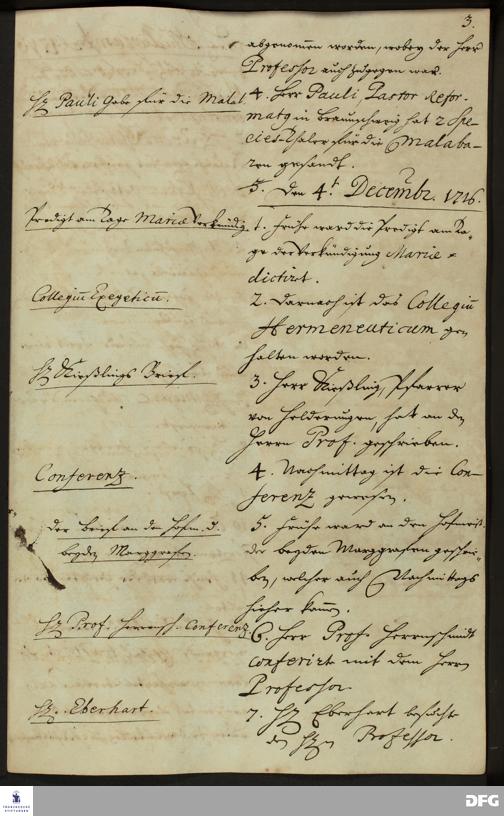 3.
abgenommen worden, wobey der Herr
Professor auch zugegen war.
H. Pauli Gabe für die Malab.
4. Herr Pauli, Pastor Refor-
mat9 in Braunschweig hat 2 Spe-
cies-Thaler für die Malaba-
ren gesandt.
5. Den 4.t Decembr. 1716.
Predigt am Tage Mariæ Verkündig.
1. Frühe ward die Predigt am Ta-
ge der Verkündigung Mariæ
dictirt.
Collegiū Exegeticū.
2. Darnach ist das Collegiū
Hermeneuticum ge-
halten worden.
H. Kießlings Brief.
3. Herr Kießling, Pfarrer
von hat an den
Herrn Prof. geschrieben.
Conferenz.
4. Nachmittag ist die Con-
ferenz gewesen.
Der Brief an den Hofm. d.
beyden Marggrafen.
5. Frühe ward an den Hofmeist.
der beyden Marggrafen geschrie-
ben, welcher auch Nachmittags
hieher kam.
H. Prof. Herrnsch. Conferenz.
6. Herr Prof. Herrnschmidt
conferirte mit dem Herrn
Professor.
H. Eberhart.
7. H. Eberhart besuchte
den H. Professor.
FRANCKESCHE
STIFTUNGEN
DFG